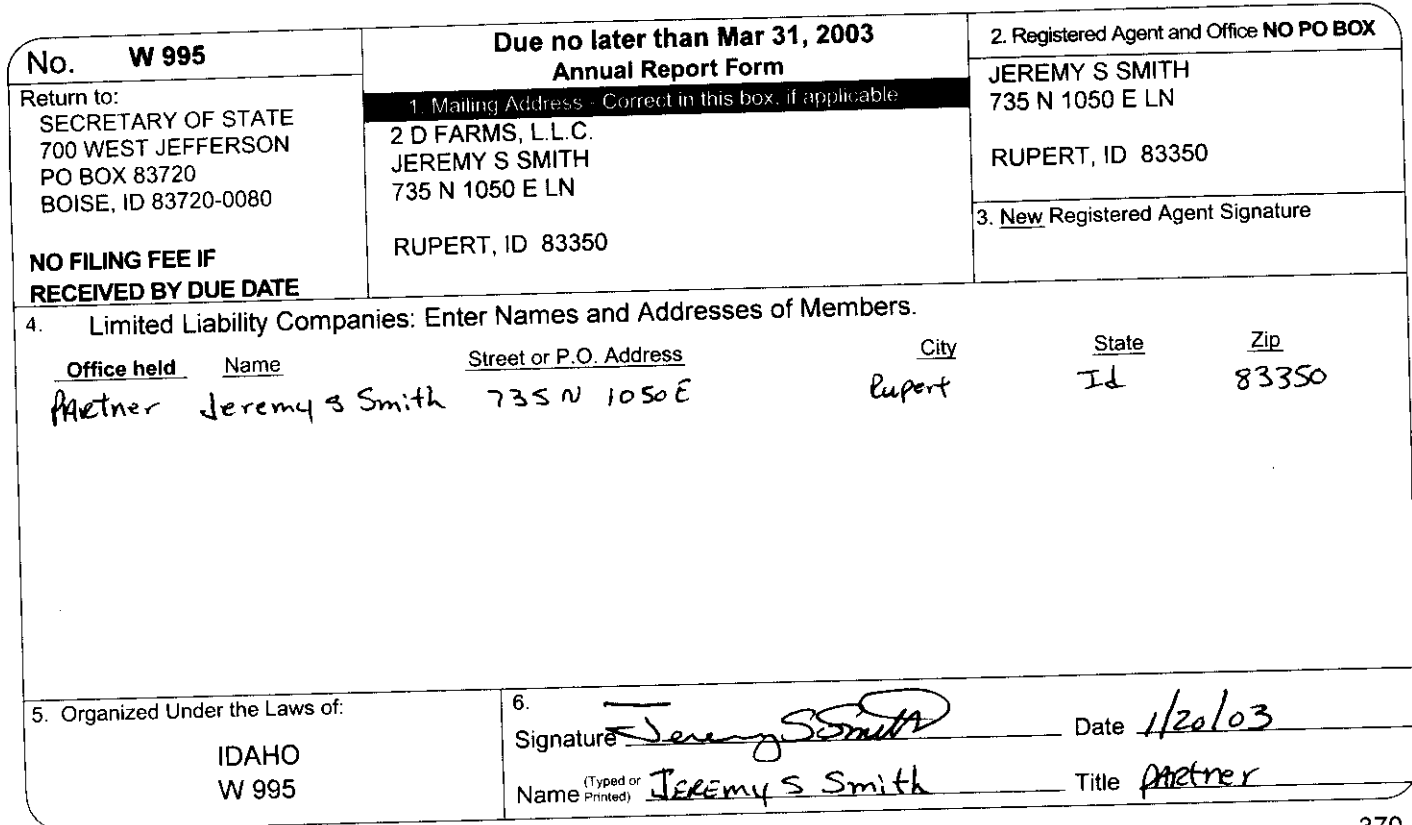 No. W 995
Return to:
SECRETARY OF STATE
700 WEST JEFFERSON
PO BOX 83720
BOISE, ID 83720-0080
NO FILING FEE IF
RECEIVED BY DUE DATE
Due no later than Mar 31, 2003
Annual Report Form
1. Mailing Address - Correct in this box, if applicable
2 D FARMS, L.L.C.
JEREMY S SMITH
735 N 1050 E LN
RUPERT, ID 83350
2. Registered Agent and Office NO PO BOX
JEREMY S SMITH
735 N 1050 E LN
RUPERT, ID 83350
3. New Registered Agent Signature
4. Limited Liability Companies: Enter Names and Addresses of Members.
Office held Name Street or P.O. Address City State Zip
PARtner Jeremy S Smith 735 N 1050 E Rupert Id 83350
5. Organized Under the Laws of:
IDAHO
W 995
6.
Signature Jeremy S Smith Date 1/20/03
Name (Typed or Printed) JEREmy S Smith Title PARtner